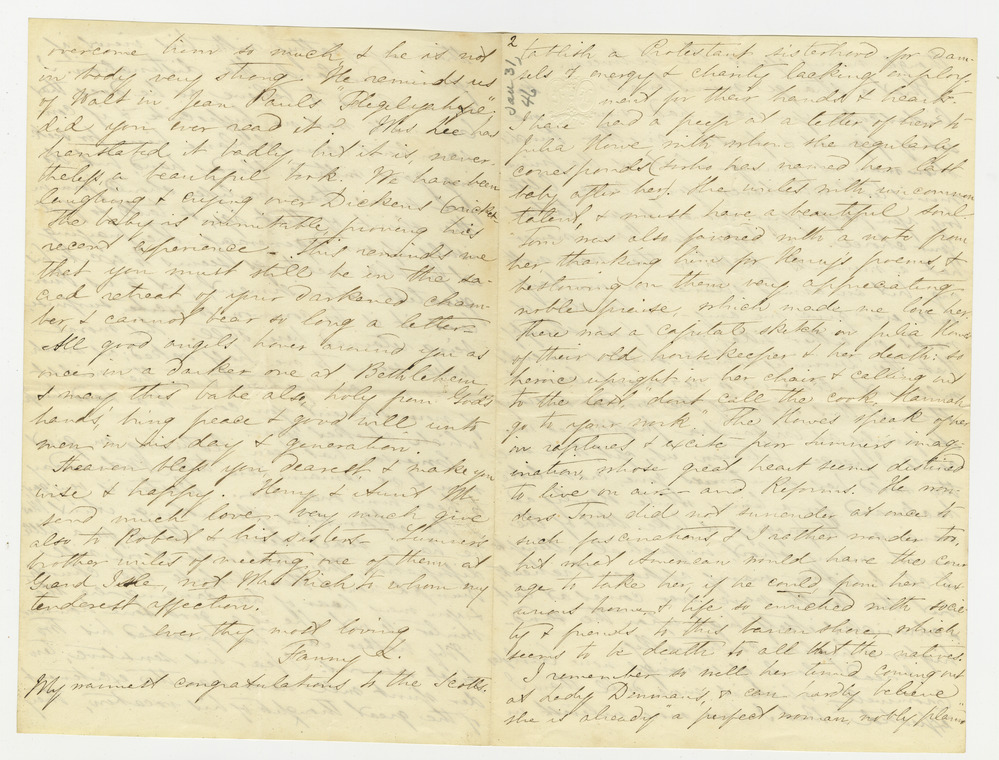 overcome him so much, & he is not
in body very strong. He reminds us
of Walt in Jean Paul's "Flegeljahre",
did you ever read it? This Lee has
translated it badly, but it is, never-
theless, a beautiful book. We have been
laughing & crying over Dickens Cricket
The baby is inimitable, proving his
recent experience. This reminds me
that you must still be in the sa-
cred retreat of your darkened cham-
ber, & cannot bear so long a letter.
All good angels hover around you as
once in a darker one at Bethlehem
& may this babe also, holy from God's
hands, bring peace & good will unto
men in his day & generation.
Heaven bless you, dearest, & make you
wise & happy. Henry & Aunt M.
send much love, very much give
also to Robert & his sisters. Sumner's
brother writes of meeting one of them at
Grand Isle, not Mrs Rich to whom my
tenderest affection.
ever thy most loving
Fanny L.
My warmest congratulations to the Scotts.
2
Jan 31
46
tablish a Protestant sisterhood for dam-
sels of energy & charity lacking employ-
ment for their hands & hearts.
I have had a peep at a letter of hers to
Julia Howe, with whom she regularly
corresponds (who has named her last
baby after her). She writes with uncommon
talent, & must have a beautiful soul
Tom was also favored with a note from
her, thanking him for Henry's poems, &
bestowing on them very appreciating
noble praise, which made me love her.
There was a capital sketch in Julia Howe's
of their old housekeeper & her death: so
heroic upright in her chair & calling out
to the last, "don't call the cook, Hannah
go to your work". The Howes speak of her
in raptures & excite even Sumner's imag-
ination, whose great heart seems destined
to live on air – and Reforms. He won-
ders Tom did not surrender at once to
such fascinations & I rather wonder too,
but what American would have the cour-
age to take her, if he could from her lux-
urious home & life so enriched with socie-
ty & friends to this barren shore, which
seems to be death to all but the natives.
I remember so well her timid coming out
at Lady Denman's, & can hardly believe
she is already "a perfect woman, nobly plann'd